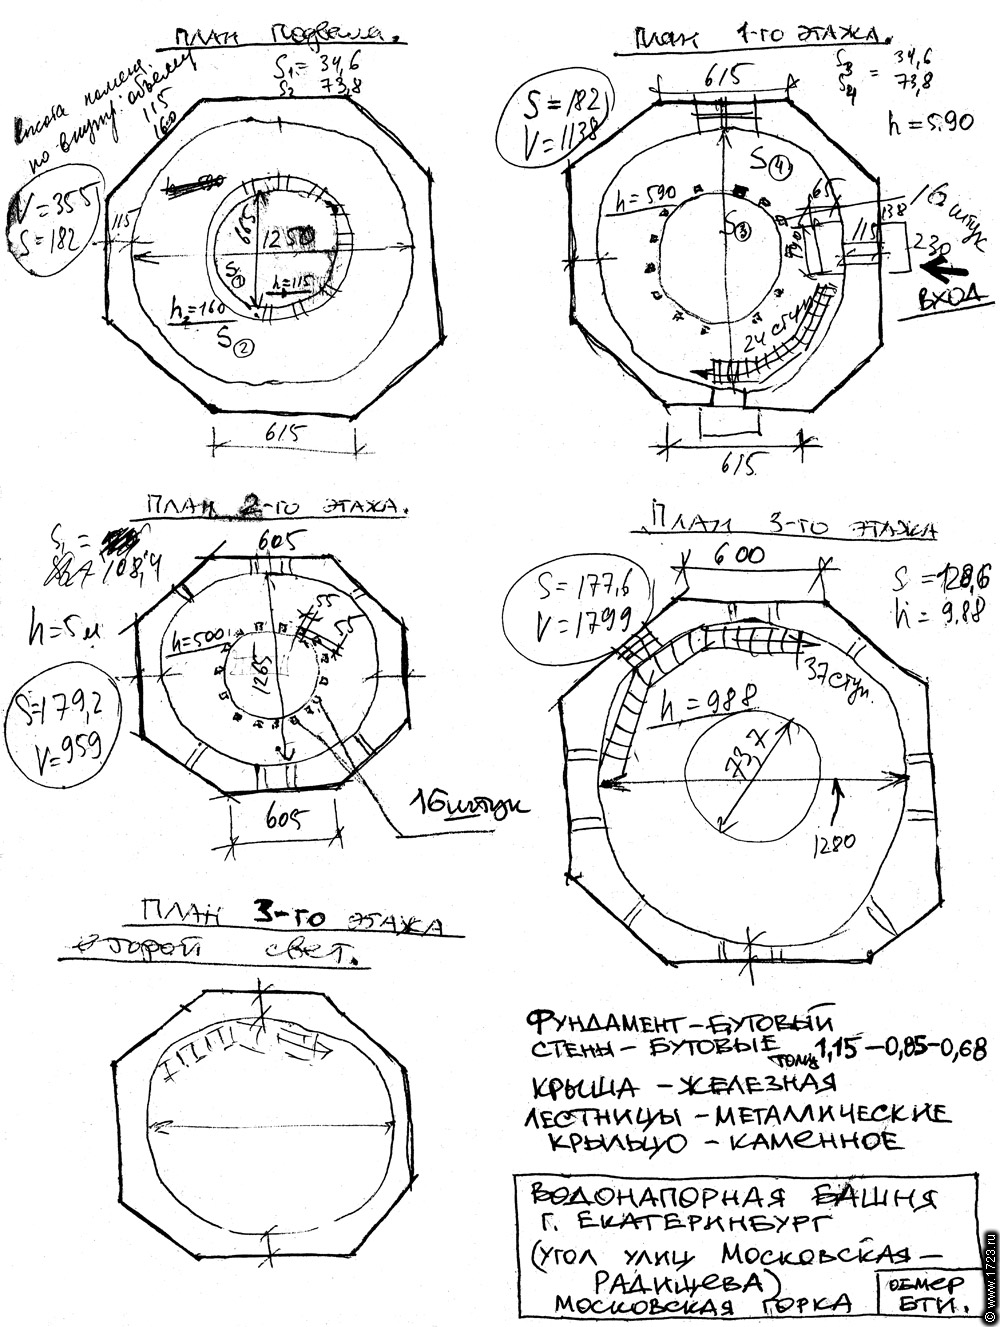 ПЛАН подвала.
S1 = 34,6
S2 73,8
Высота помещ.
по внутр. объему
115
160
V=355
S=182
115
685
1250
S①
h=115
h2=160
S②
615
План 1-го этажа.
S3 = 34,6
S4 73,8
h=5.90
S=182
V=1138
615
S④
h=590
S③
65
162 штук
590
115
138
230
ВХОД
24 ступ
615
ПЛАН 2-го этажа.
S1 =
108,4
h=5м
S=179,2
V=959
605
55
55
h=500
1265
605
16 штук
ПЛАН 3-го этажа
S=128,6
h=9.88
S=177,6
V=1799
600
37 ступ.
h=988
737
1280
ПЛАН 3-го этажа
второй свет.
ФУНДАМЕНТ – БУТОВЫЙ
СТЕНЫ – БУТОВЫЕ толщ 1,15–0,85–0,68
КРЫША – ЖЕЛЕЗНАЯ
ЛЕСТНИЦЫ – МЕТАЛЛИЧЕСКИЕ
КРЫЛЬЦО – КАМЕННОЕ
ВОДОНАПОРНАЯ БАШНЯ
Г. ЕКАТЕРИНБУРГ
(УГОЛ УЛИЦ МОСКОВСКАЯ –
РАДИЩЕВА)
МОСКОВСКАЯ ГОРКА
ОБМЕР
БТИ.
© www.1723.ru